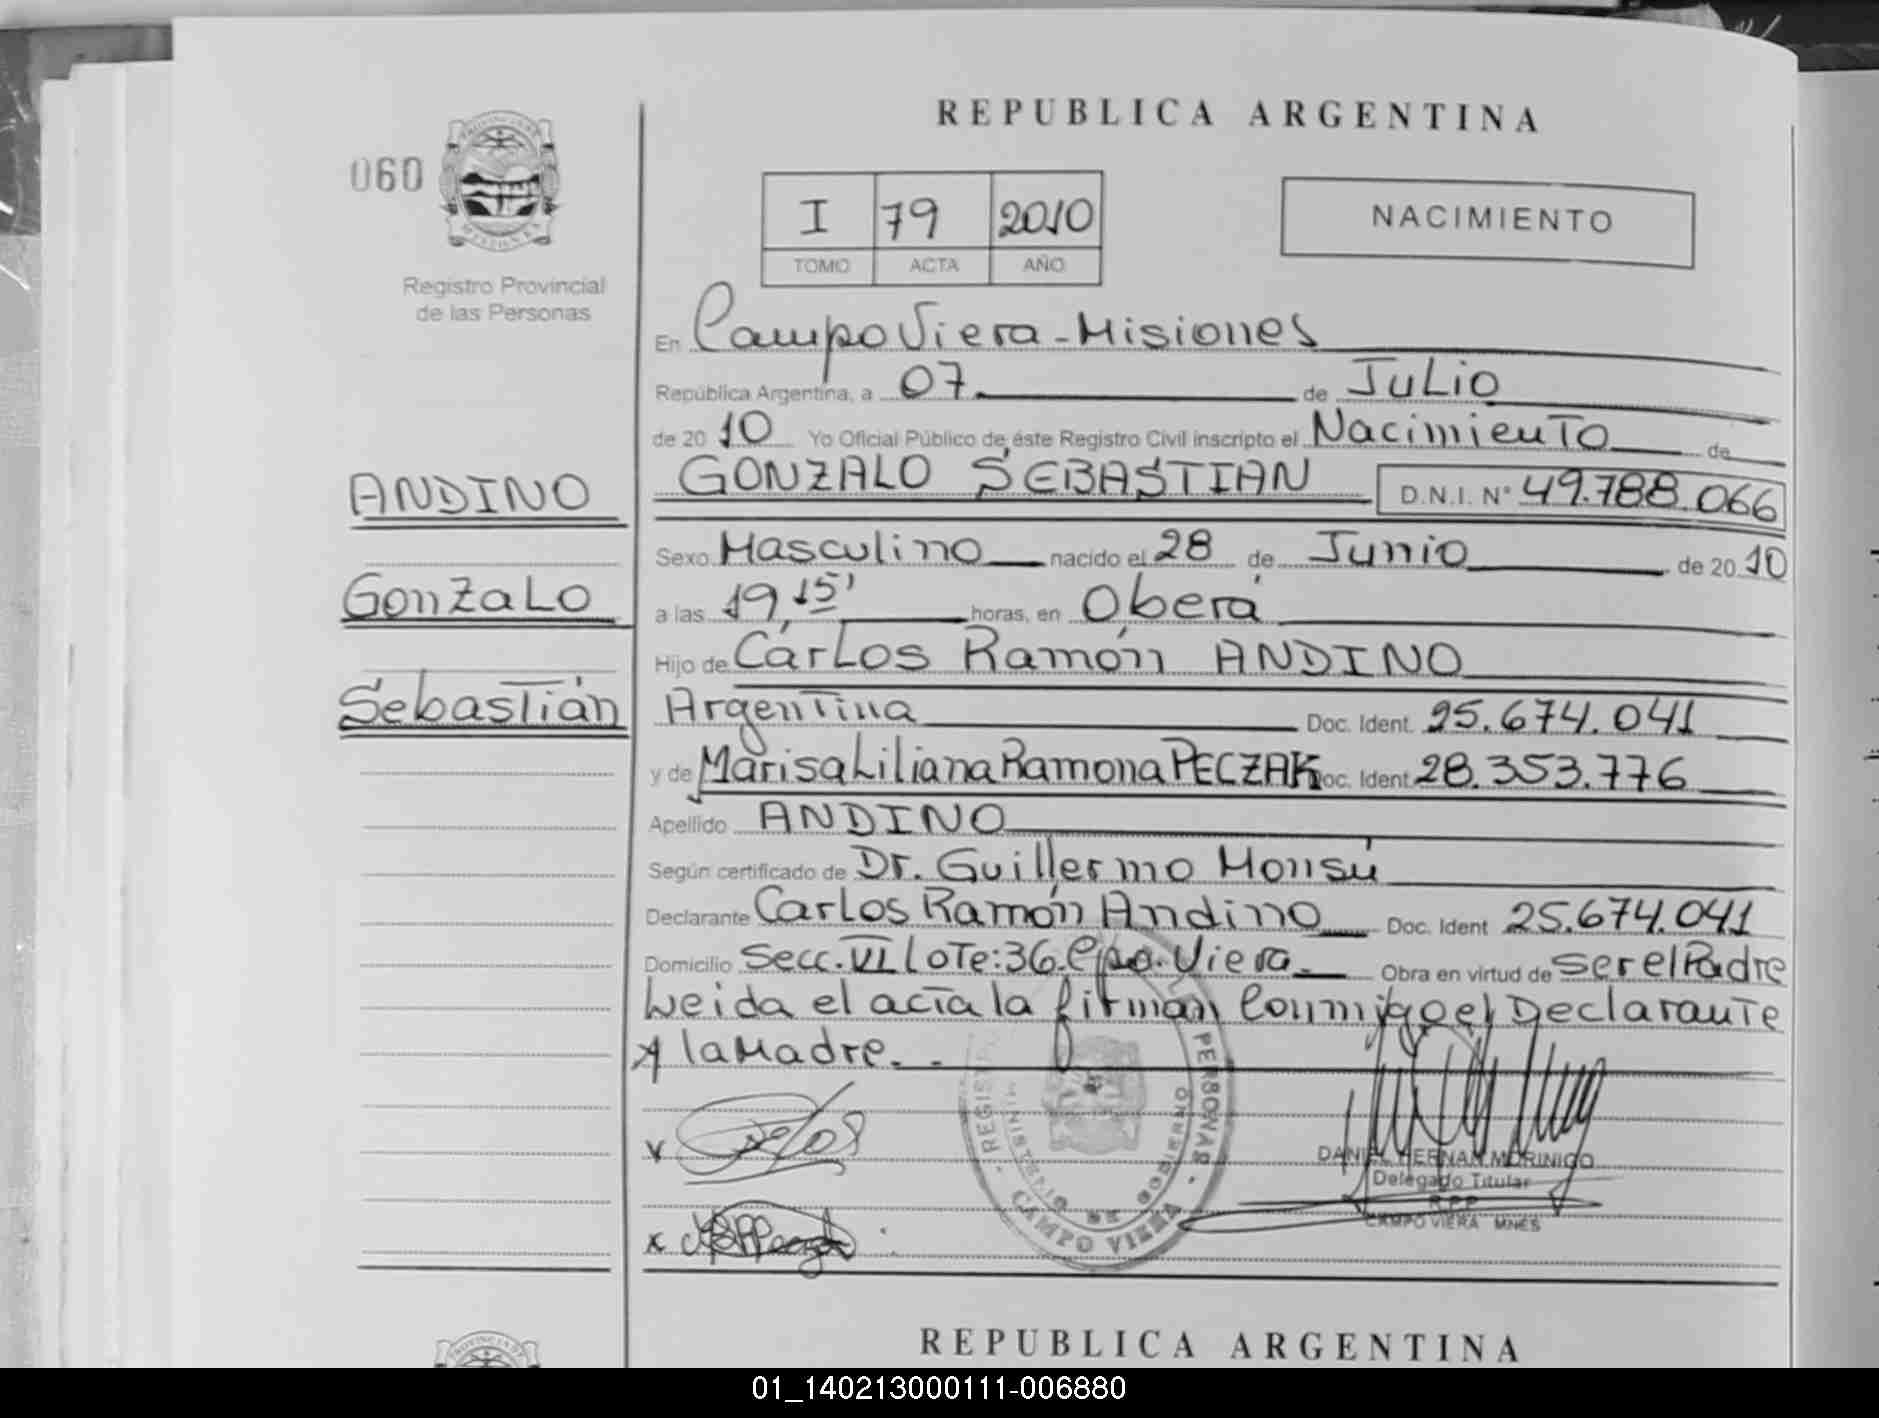 REPUBLICA ARGENTINA
060
PROVINCIA DE
MISIONES
Registro Provincial
de las Personas
I 79 2010
TOMO ACTA AÑO
NACIMIENTO
En Campo Viera - Misiones
República Argentina, a 07 de Julio
de 20 10 Yo Oficial Público de éste Registro Civil inscripto el Nacimiento de
GONZALO SEBASTIAN D.N.I. N° 49.788.066
ANDINO
Gonzalo
Sebastián
Sexo Masculino nacido el 28 de Junio de 20 10
a las 19 15' horas, en Oberá
Hijo de Carlos Ramón ANDINO
Argentina Doc. Ident. 25.674.041
y de Marisa Liliana Ramona PECZAK Doc. Ident. 28.353.776
Apellido ANDINO
Según certificado de Dr. Guillermo Monsú
Declarante Carlos Ramón Andino Doc. Ident 25.674.041
Domicilio Secc. VI Lote: 36. Cpo. Viera Obra en virtud de ser el Padre
Leida el acta la firman Conmigo el Declarante
y la Madre. -
REGISTRO PERSONAS
MINISTERIO DE GOBIERNO
CAMPO VIERA
DANIEL HERNAN MORINIGO
Delegado Titular
R.P.P
CAMPO VIERA MNES
REPUBLICA ARGENTINA
01_140213000111-006880